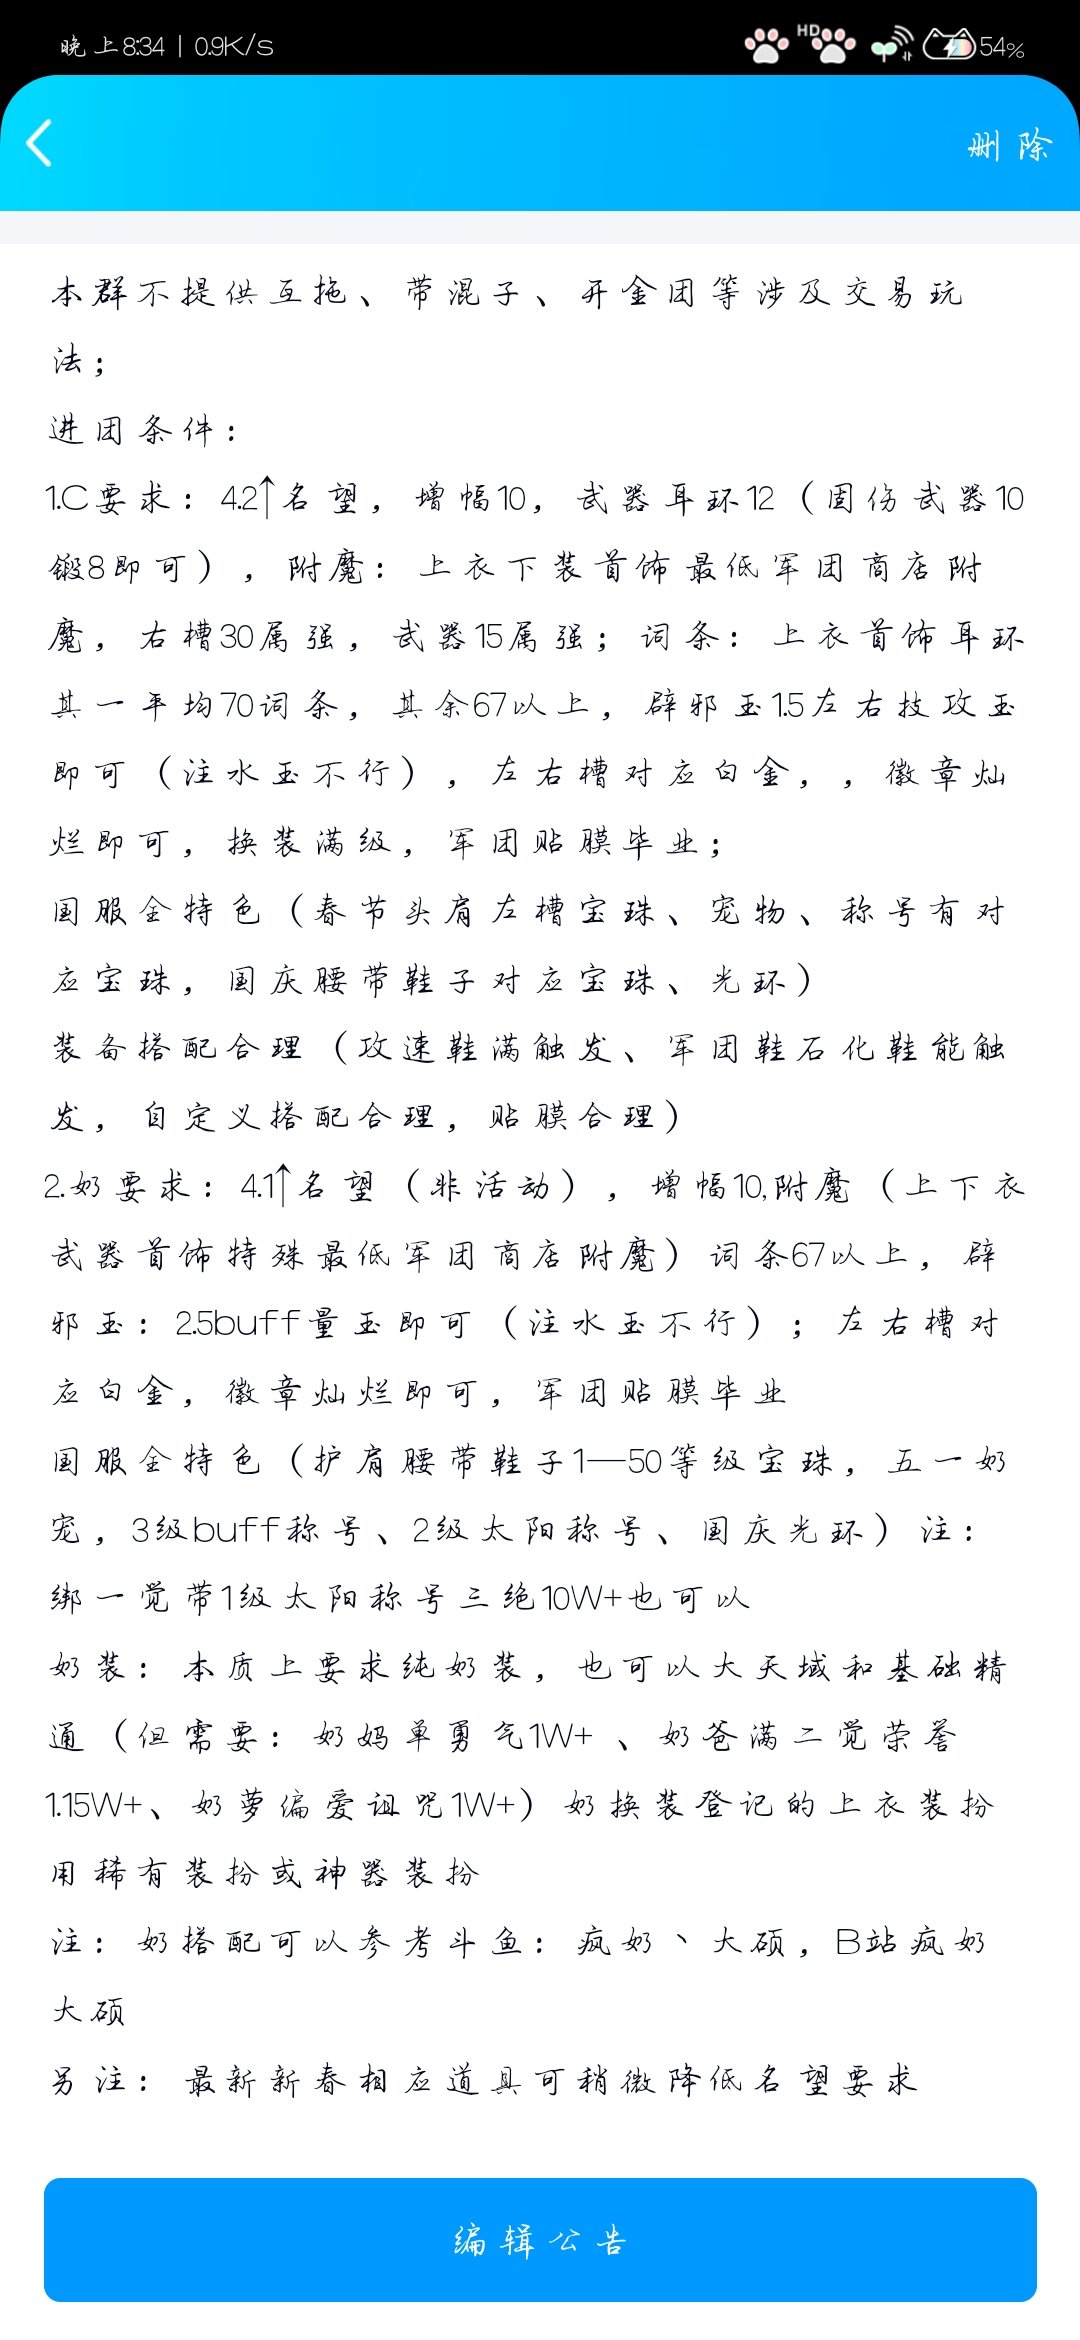 晚上8:34 | 0.9K/s
HD
54%
删除
本群不提供互拖、带混子、开金团等涉及交易玩
法；
进团条件：
1.C要求：4.2↑名望，增幅10，武器耳环12（固伤武器10
锻8即可），附魔：上衣下装首饰最低军团商店附
魔，右槽30属强，武器15属强；词条：上衣首饰耳环
其一平均70词条，其余67以上，辟邪玉1.5左右技攻玉
即可（注水玉不行），左右槽对应白金，，徽章灿
烂即可，换装满级，军团贴膜毕业；
国服全特色（春节头肩左槽宝珠、宠物、称号有对
应宝珠，国庆腰带鞋子对应宝珠、光环）
装备搭配合理（攻速鞋满触发、军团鞋石化鞋能触
发，自定义搭配合理，贴膜合理）
2.奶要求：4.1↑名望（非活动），增幅10,附魔（上下衣
武器首饰特殊最低军团商店附魔）词条67以上，辟
邪玉：2.5buff量玉即可（注水玉不行）；左右槽对
应白金，徽章灿烂即可，军团贴膜毕业
国服全特色（护肩腰带鞋子1—50等级宝珠，五一奶
宠，3级buff称号、2级太阳称号、国庆光环）注：
绑一觉带1级太阳称号三绝10W+也可以
奶装：本质上要求纯奶装，也可以大天域和基础精
通（但需要：奶妈单勇气1W+ 、奶爸满二觉荣誉
1.15W+、奶萝偏爱诅咒1W+）奶换装登记的上衣装扮
用稀有装扮或神器装扮
注：奶搭配可以参考斗鱼：疯奶丶大硕，B站疯奶
大硕
另注：最新新春相应道具可稍微降低名望要求
编辑公告